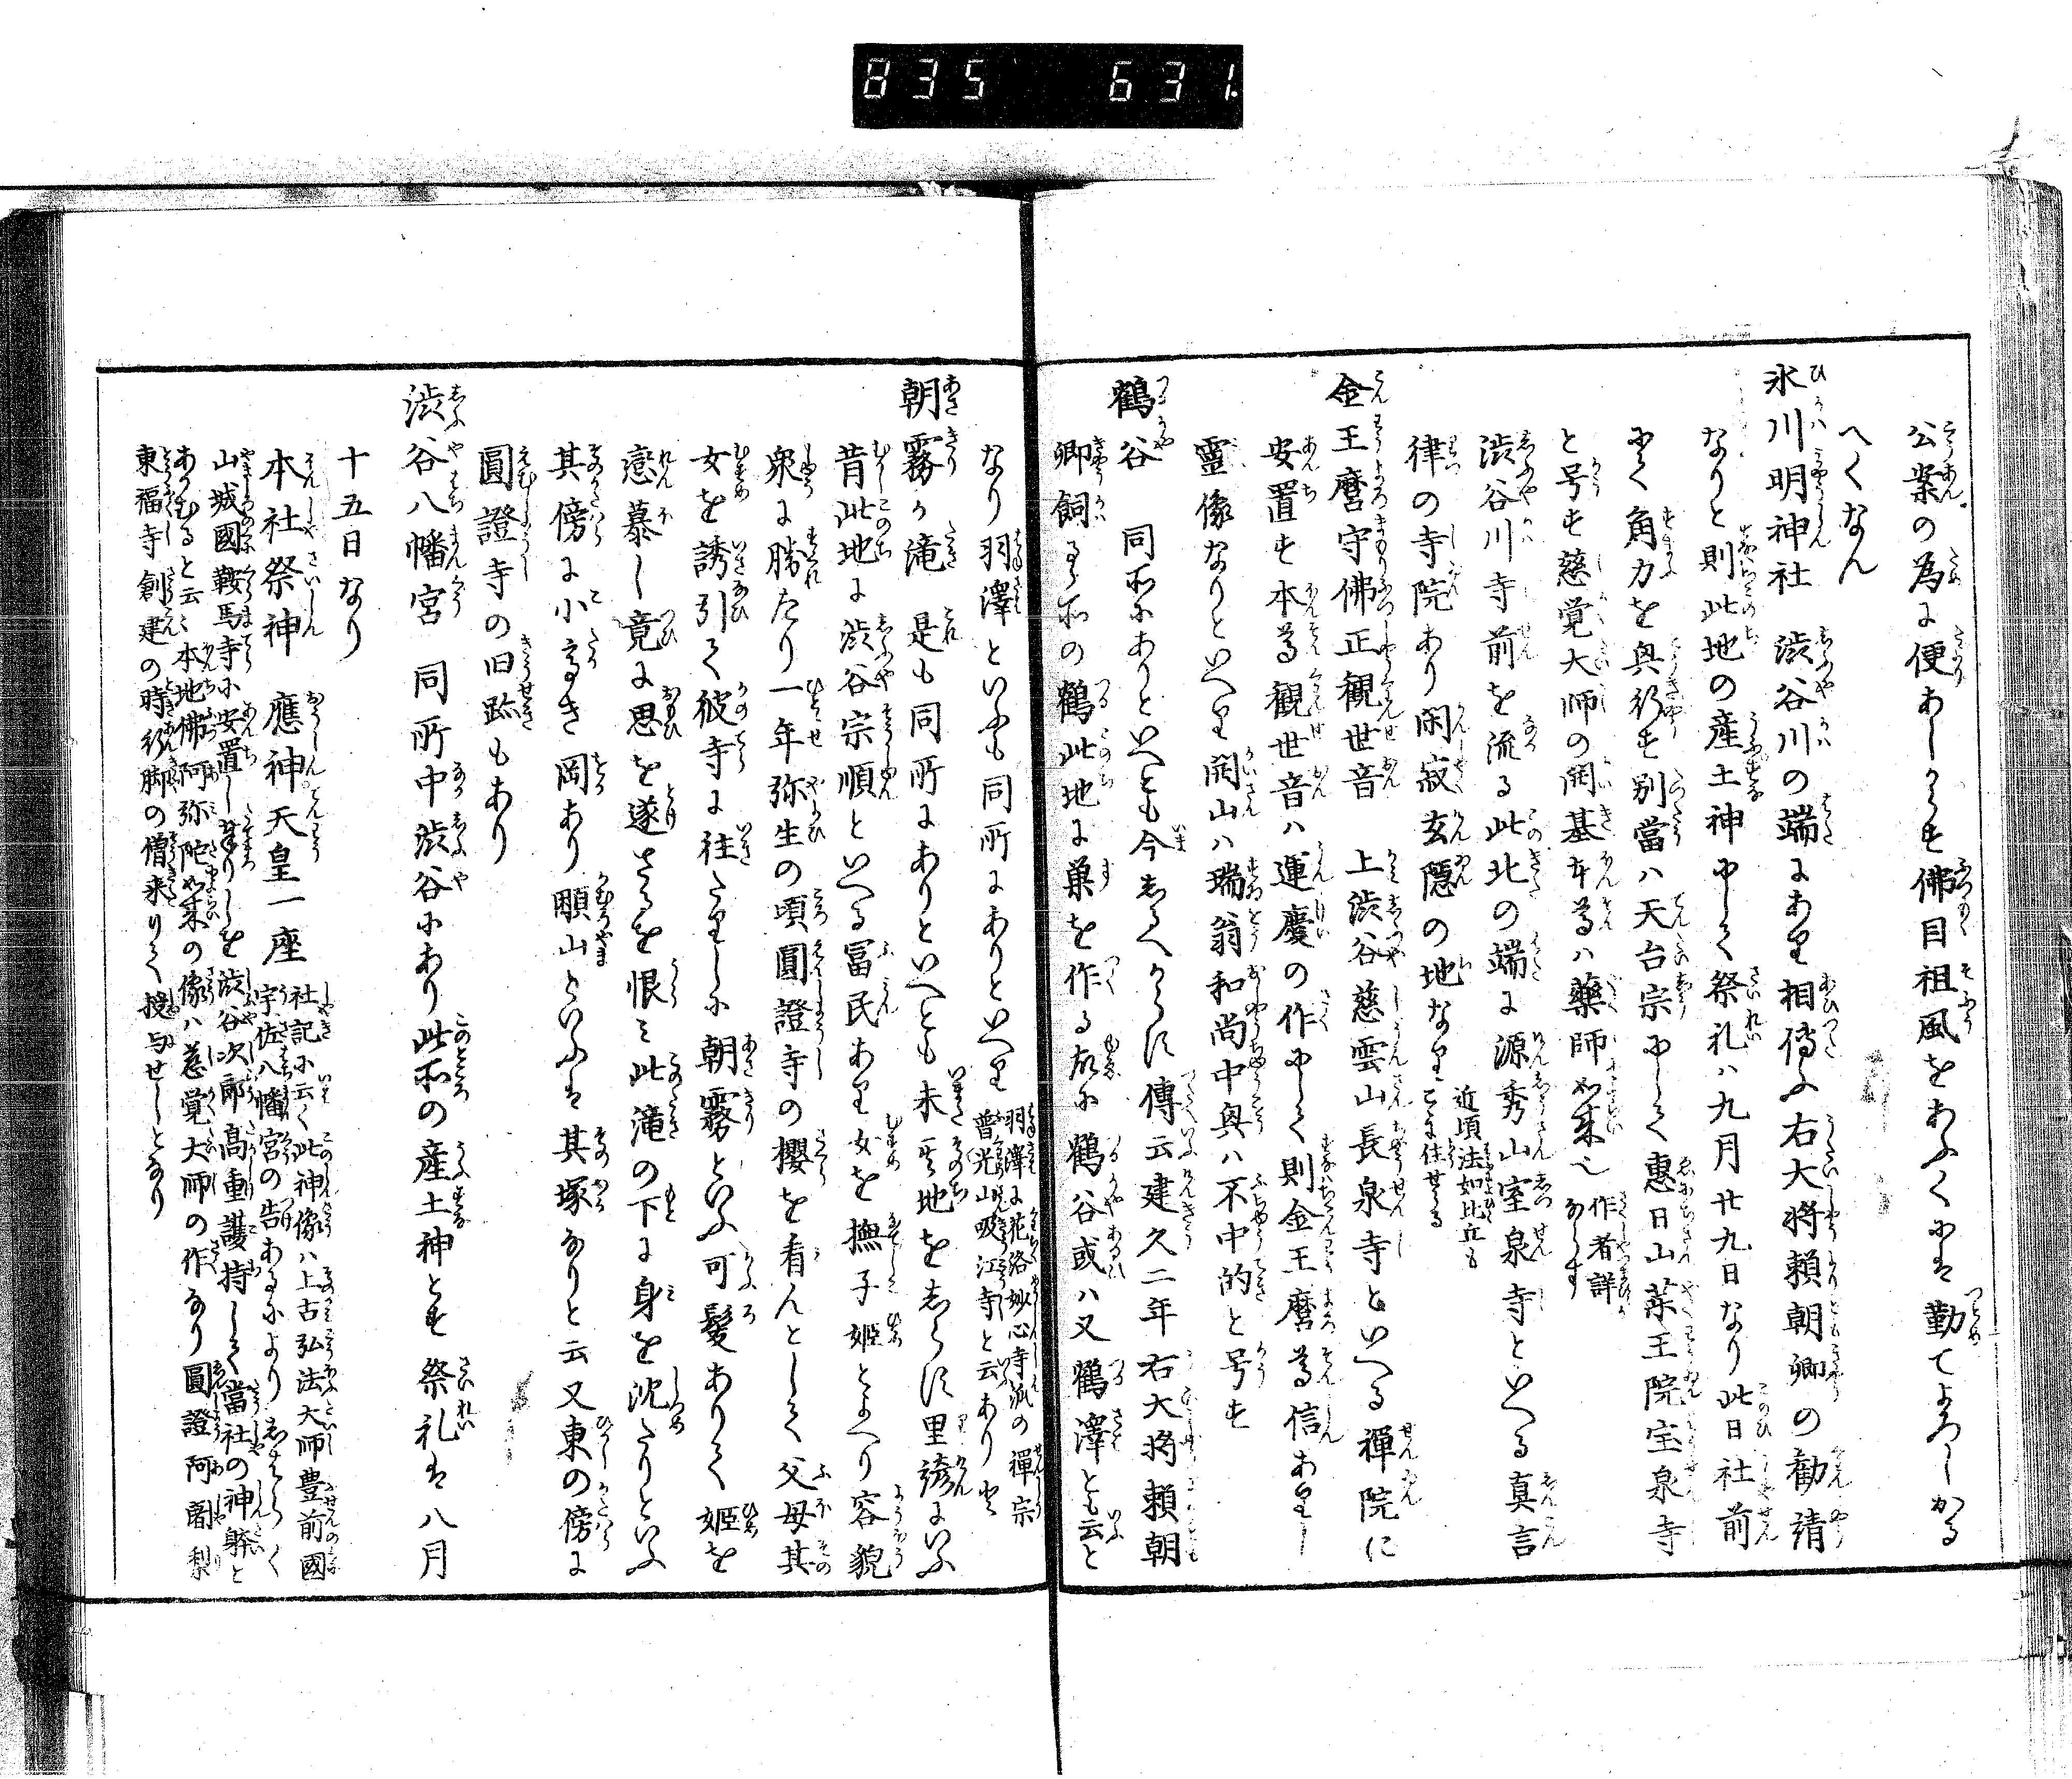 835 631.
公案の為に便あしからす佛目祖風をあふくには勤てよろしかる
へくなん
氷川明神社 渋谷川の端にあり相傳ふ右大将頼朝卿の勧請
なりと則此地の産土神にして祭礼ハ九月廿九日なり此日社前
にて角力を興行す別當ハ天台宗にして惠日山薬王院宝泉寺
と号す慈覚大師の開基本尊ハ藥師如来也 作者詳ならす
渋谷川寺前を流る此北の端に源秀山室泉寺といへる真言
律の寺院あり閑寂玄隠の地なり 近頃法如比丘もこゝに住せる
金王麿守佛正観世音 上渋谷慈雲山長泉寺といへる禪院に
安置す本尊観世音ハ運慶の作にして則金王麿尊信ありし
靈像なりといへり開山ハ瑞翁和尚中興ハ不中的と号す
鶴谷 同所にありといへとも今しるへからす傳云建久二年右大将頼朝
卿飼る所の鶴此地に巣を作る故に鶴谷或ハ又鶴澤とも云と
なり羽澤といふも同所にありといへり 羽澤に花洛妙心寺派の禪宗普光山吸江寺と云あり
朝霧か滝 是も同所にありといへとも未其地をしらす里諺にいふ
昔此地に渋谷宗順といへる冨民あり女を撫子姫とよへり容貌
衆に勝たり一年弥生の頃圓證寺の櫻を看んとして父母其
女を誘引て彼寺に往たりしに朝霧といふ可髪ありて姫を
戀慕し竟に思を遂さるを恨み此滝の下に身を沈たりといふ
其傍に小高き岡あり願山といふは其塚なりと云又東の傍に
圓證寺の旧跡もあり
渋谷八幡宮 同所中渋谷にあり此所の産土神とす祭礼は八月
十五日なり
本社祭神 應神天皇一座 社記に云く此神像ハ上古弘法大師豊前國
宇佐八幡宮の告あるによりしはらく
山城國鞍馬寺に安置し奉りしを渋谷次郎髙重護持して當社の神躰と
あかむると云々本地佛阿弥陀如来の像ハ慈覚大師の作なり圓證阿闍梨
東福寺創建の時行脚の僧来りて授与せしとなり